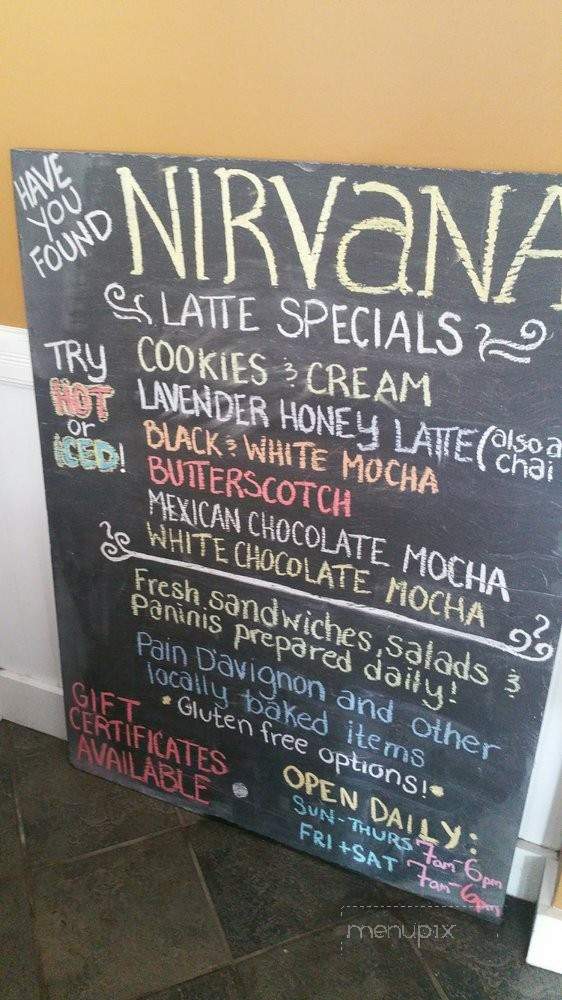 HAVE
YOU
FOUND
NIRVANA
LATTE SPECIALS
TRY
HOT
or
ICED!
COOKIES & CREAM
LAVENDER HONEY LATTE (also a
chai
BLACK & WHITE MOCHA
BUTTERSCOTCH
MEXICAN CHOCOLATE MOCHA
WHITE CHOCOLATE MOCHA
Fresh sandwiches, salads &
Paninis prepared daily!
Pain D'avignon and other
locally baked items
*Gluten free options!*
GIFT
CERTIFICATES
AVAILABLE
OPEN DAILY:
SUN-THURS 7am-6pm
FRI + SAT 7am-6pm
menupix